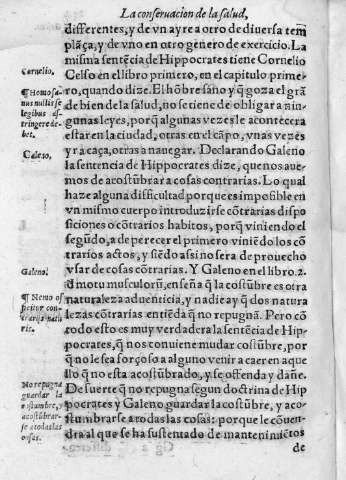 La conseruacion de la salud,
differentes, y de vn ayre a otro de diuersa tem
plāça, y de vno en otro genero de exercicio. La
misma sentēcia de Hippocrates tiene Cornelio
Celso en el libro primero, en el capitulo prime-
ro, quando dize. El hōbre sano y q̄ goza el grā
de bien de la salud, no se tiene de obligar a nin-
gunas leyes, porq̄ algunas vezes le acontecera
estar en la ciudad, otras en el cāpo, vnas vezes
yr a caça, otras a nauegar. Declarando Galeno
la sentencia de Hippocrates dize, que nos aue-
mos de acostūbrar a cosas contrarias. Lo qual
haze alguna difficultad porque es impossible en
vn mismo cuerpo introduzirse cōtrarias dispo
siciones o cōtrarios habitos, porq̄ viniendo el
segūdo, a de perecer el primero viniēdo los cō
trarios actos, y siēdo assi no sera de prouecho
vsar de cosas cōtrarias. Y Galeno en el libro. 2.
d̄ motu musculorū, enseña q̄ la costūbre es otra
naturaleza aduenticia, y nadie ay q̄ dos natura
lezas cōtrarias entiēda q̄ no repugnā. Pero cō
todo esto es muy verdadera la sentēcia de Hip-
pocrates, q̄ nos conuiene mudar costūbre, por
que no le sea forçoso a alguno venir a caer en aque
llo q̄ no esta acostūbrado, y se offenda y dañe.
De suerte q̄ no repugna segun doctrina de Hip
pocrates y Galeno guardar la costūbre, y aco-
stumbrarse a todas las cosas: porque le cōuen-
dra al que se ha sustentado de mantenimiētos
de
Cornelio.
¶ Homo sa-
nus nullis se
legibus as-
tringere de-
bet.
Galeno.
Galeno.
¶ Nemo os
naris.
No repugna
guardar la
costumbre, y
acostūbrar-
se a todas las
cosas.